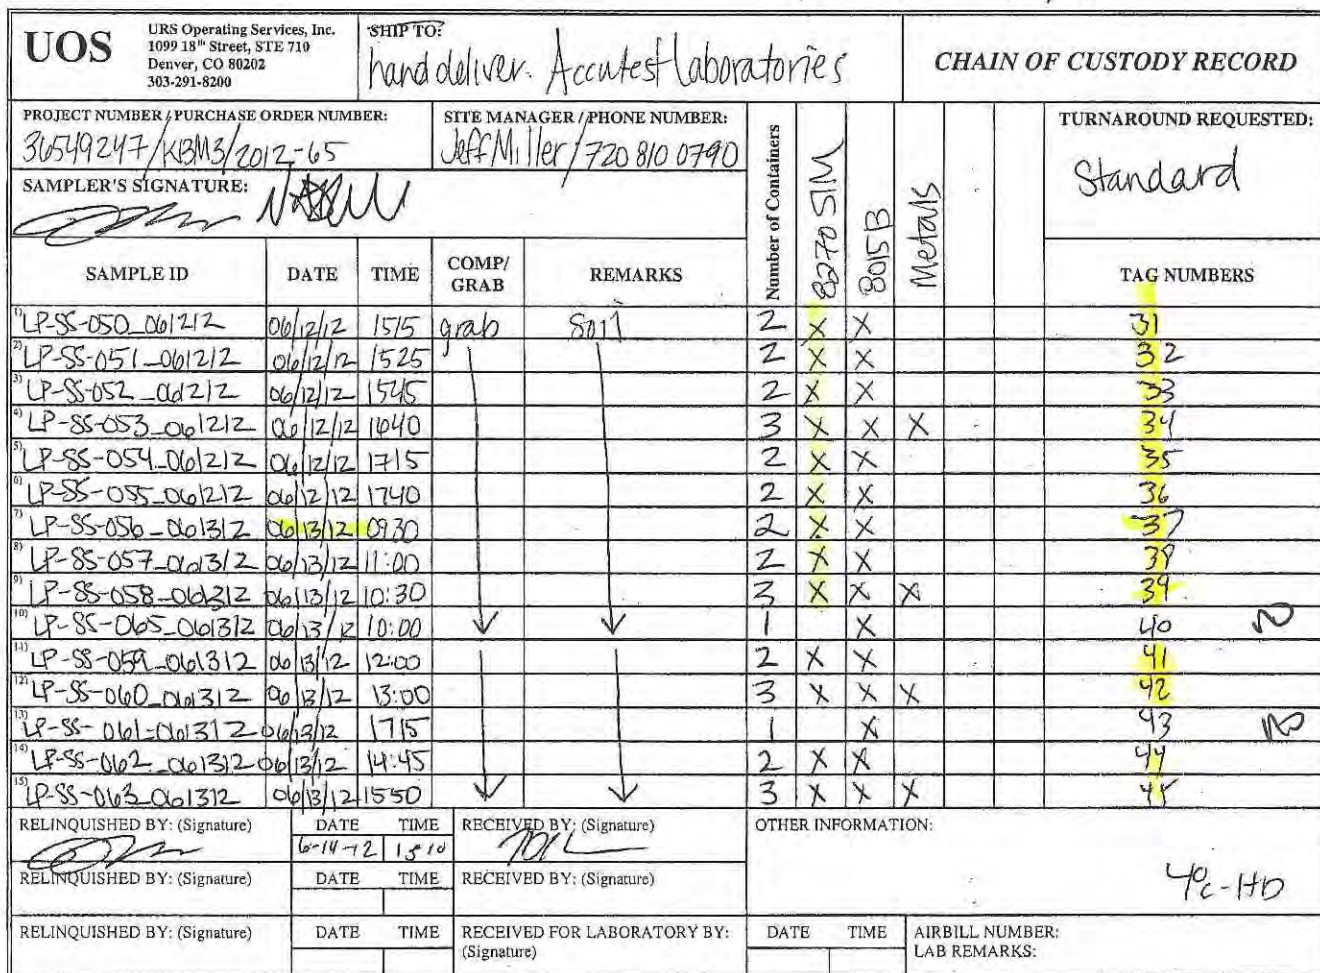 UOS
URS Operating Services, Inc.
1099 18th Street, STE 710
Denver, CO 80202
303-291-8200
SHIP TO:
hand deliver. Accutest laboratories
CHAIN OF CUSTODY RECORD
PROJECT NUMBER / PURCHASE ORDER NUMBER:
36549247/KBM3/2012-65
SITE MANAGER / PHONE NUMBER:
Jeff Miller / 720 810 0790
SAMPLER'S SIGNATURE:
TURNAROUND REQUESTED:
Standard
SAMPLE ID DATE TIME COMP/ GRAB REMARKS Number of Containers 8270 SIM 8015B Metals TAG NUMBERS
1) LP-SS-050_061212 06/12/12 1515 grab Soil 2 X X 31
2) LP-SS-051_061212 06/12/12 1525 2 X X 32
3) LP-SS-052_061212 06/12/12 1545 2 X X 33
4) LP-SS-053_061212 06/12/12 1640 3 X X X 34
5) LP-SS-054_061212 06/12/12 1715 2 X X 35
6) LP-SS-055_061212 06/12/12 1740 2 X X 36
7) LP-SS-056_061312 06/13/12 0930 2 X X 37
8) LP-SS-057_061312 06/13/12 11:00 2 X X 38
9) LP-SS-058_061312 06/13/12 10:30 3 X X X 39
10) LP-SS-065_061312 06/13/12 10:00 1 X 40
11) LP-SS-059_061312 06/13/12 12:00 2 X X 41
12) LP-SS-060_061312 06/13/12 13:00 3 X X X 42
13) LP-SS-061-061312 06/13/12 1715 1 X 43
14) LP-SS-062_061312 06/13/12 14:45 2 X X 44
15) LP-SS-063_061312 06/13/12 1550 3 X X X 45
RELINQUISHED BY: (Signature) DATE TIME RECEIVED BY: (Signature) OTHER INFORMATION:
6-14-12 1510
RELINQUISHED BY: (Signature) DATE TIME RECEIVED BY: (Signature)
4°c-HD
RELINQUISHED BY: (Signature) DATE TIME RECEIVED FOR LABORATORY BY: (Signature) DATE TIME AIRBILL NUMBER:
LAB REMARKS: